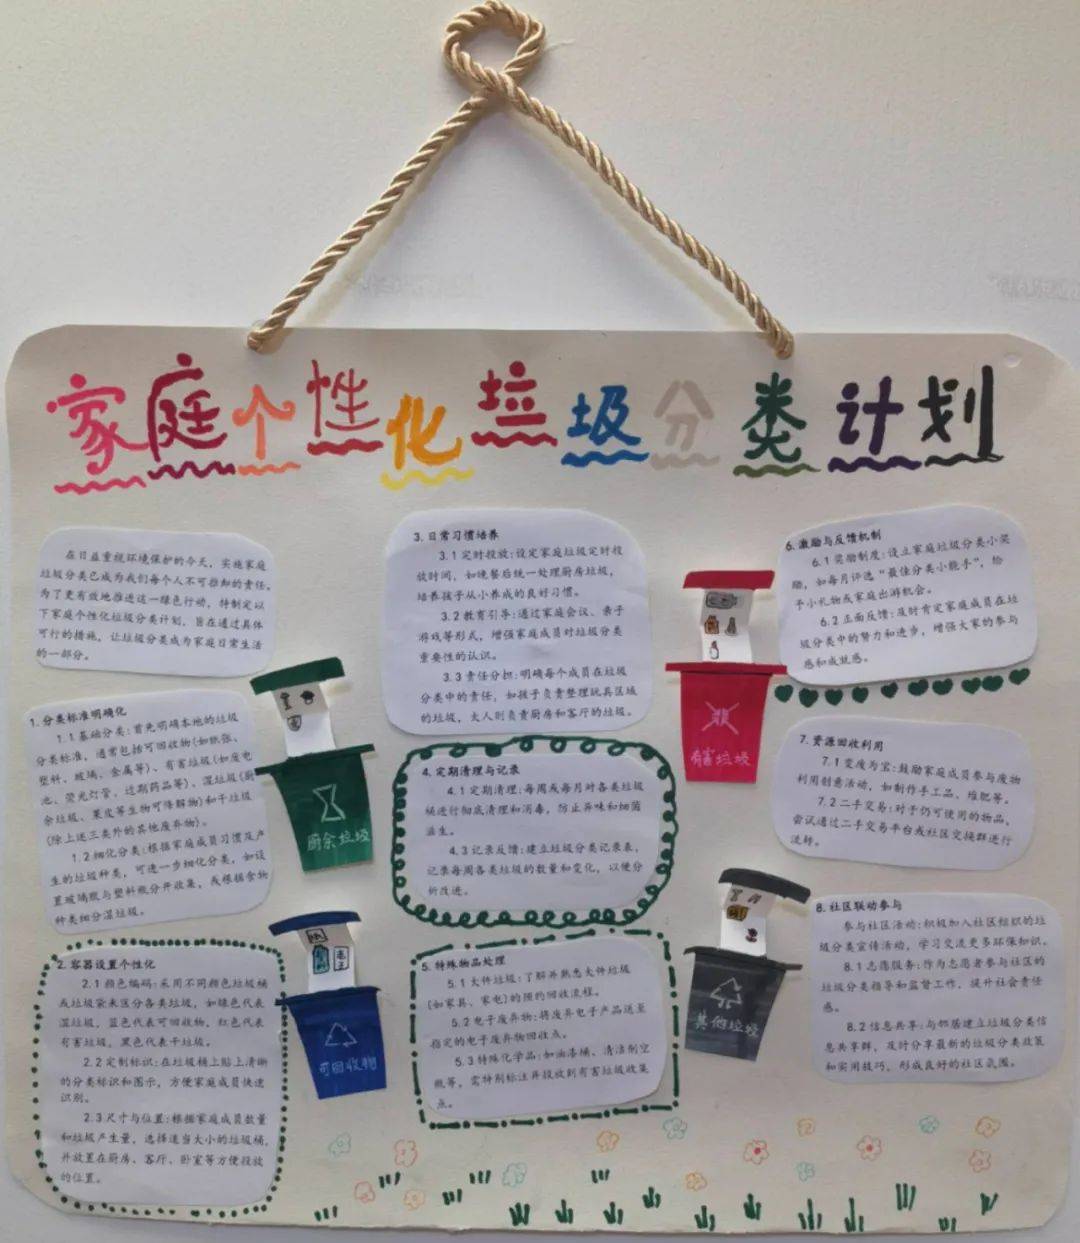 家庭个性化垃圾分类计划
在日益重视环境保护的今天，实施家庭
垃圾分类已成为我们每个人不可推卸的责任。
为了更有效地推进这一绿色行动，特制定以
下家庭个性化垃圾分类计划，旨在通过具体
可行的措施，让垃圾分类成为家庭日常生活
的一部分。
1.分类标准明确化
1.1基础分类：首先明确本地的垃圾
分类标准，通常包括可回收物(如纸张、
塑料、玻璃、金属等)、有害垃圾(如废电
池、荧光灯管、过期药品等)、湿垃圾(厨
余垃圾、果皮等生物可降解物)和干垃圾
(除上述三类外的其他废弃物)。
1.2细化分类：根据家庭成员习惯及产
生的垃圾种类，可进一步细化分类，如设
置玻璃瓶与塑料瓶分开收集，或根据食物
种类细分湿垃圾。
2.容器设置个性化
2.1颜色编码：采用不同颜色垃圾桶
或垃圾袋来区分各类垃圾，如绿色代表
湿垃圾，蓝色代表可回收物，红色代表
有害垃圾，黑色代表干垃圾。
2.2定制标识：在垃圾桶上贴上清晰
的分类标识和图示，方便家庭成员快速
识别。
2.3尺寸与位置：根据家庭成员数量
和垃圾产生量，选择适当大小的垃圾桶，
并放置在厨房、客厅、卧室等方便投放
的位置。
厨余垃圾
可回收物
3.日常习惯培养
3.1定时投放：设定家庭垃圾定时投
放时间，如晚餐后统一处理厨房垃圾，
培养孩子从小养成的良好习惯。
3.2教育引导：通过家庭会议、亲子
游戏等形式，增强家庭成员对垃圾分类
重要性的认识。
3.3责任分担：明确每个成员在垃圾
分类中的责任，如孩子负责整理玩具区域
的垃圾，大人则负责厨房和客厅的垃圾。
4.定期清理与记录
4.1定期清理：每周或每月对各类垃圾
桶进行彻底清理和消毒，防止异味和细菌
滋生。
4.3记录反馈：建立垃圾分类记录表，
记录每周各类垃圾的数量和变化，以便分
析改进。
5.特殊物品处理
5.1大件垃圾：了解并熟悉大件垃圾
(如家具、家电)的预约回收流程。
5.2电子废弃物：将废弃电子产品送至
指定的电子废弃物回收点。
5.3特殊化学品：如油漆桶、清洁剂空
瓶等，需特别标注并投放到有害垃圾收集
点。
有害垃圾
其他垃圾
6.激励与反馈机制
6.1奖励制度：设立家庭垃圾分类小奖
励，如每月评选“最佳分类小能手”，给
予小礼物或家庭出游机会。
6.2正面反馈：及时肯定家庭成员在垃
圾分类中的努力和进步，增强大家的参与
感和成就感。
7.资源回收利用
7.1变废为宝：鼓励家庭成员参与废物
利用创意活动，如制作手工品、堆肥等。
7.2二手交易：对于仍可使用的物品，
尝试通过二手交易平台或社区交换群进行
流转。
8.社区联动参与
参与社区活动：积极加入社区组织的垃
圾分类宣传活动，学习交流更多环保知识。
8.1志愿服务：作为志愿者参与社区的
垃圾分类指导和监督工作，提升社会责任
感。
8.2信息共享：与邻居建立垃圾分类信
息共享群，及时分享最新的垃圾分类政策
和实用技巧，形成良好的社区氛围。